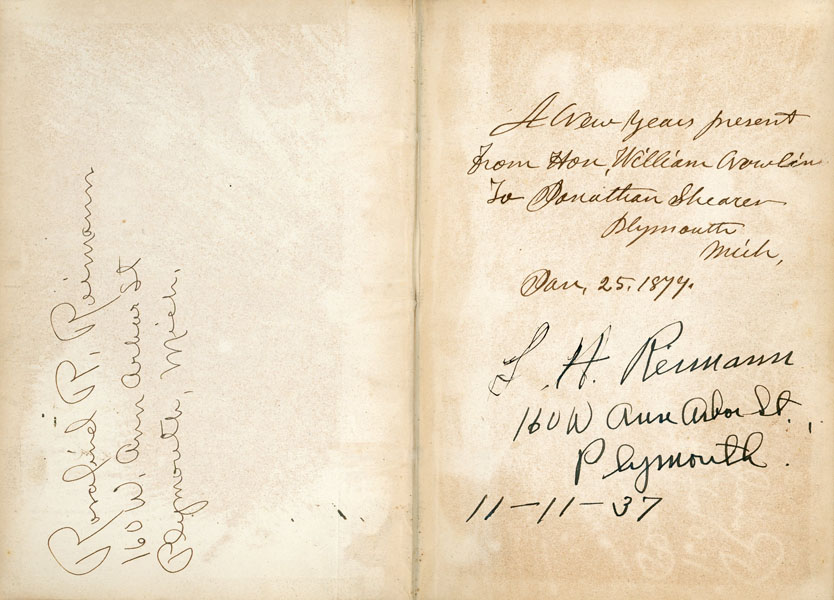 Rosalind R. Reimann
160 W. Ann Arbor St
Plymouth, Mich.
A New Years present
From Hon, William Crowlin
To Jonathan Shearer
Plymouth
Mich,
Jan, 25. 1879.
L. H. Reimann
160 W Ann Arbor St.,
Plymouth.
11-11-37